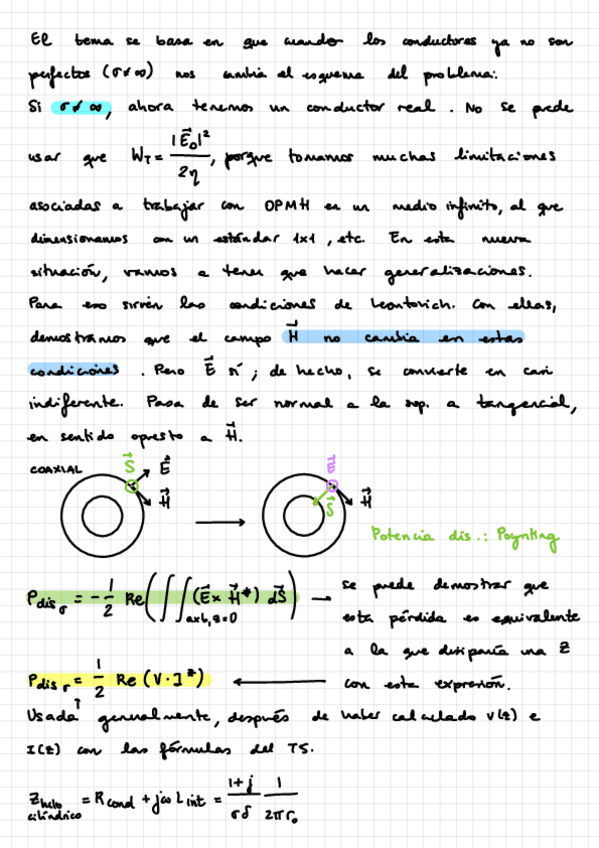 El tema se basa en que cuando los conductores ya no son
perfectos (σ≠∞) nos cambia el esquema del problema:
Si σ≠∞, ahora tenemos un conductor real. No se puede
usar que W_T = |E⃗₀|²/2η, porque tomamos muchas limitaciones
asociadas a trabajar con OPMH en un medio infinito, al que
dimensionamos con un estándar 1x1, etc. En esta nueva
situación, vamos a tener que hacer generalizaciones.
Para eso sirven las condiciones de Leontovich. Con ellas,
demostramos que el campo H⃗ no cambia en estas
condiciones. Pero E⃗ sí; de hecho, se convierte en casi
indiferente. Pasa de ser normal a la sup. a tangencial,
en sentido opuesto a H⃗.
COAXIAL S⃗ E⃗ H⃗ → E⃗ H⃗ S⃗
Potencia dis.: Poynting
P_dis_σ = -1/2 Re(∬(E⃗ x H⃗*) dS⃗) a x b, z=0 → se puede demostrar que
esta pérdida es equivalente
a la que disiparía una Z
con esta expresión.
P_dis_σ = 1/2 Re(V·I*) ←
Usada generalmente, después de haber calculado V(z) e
I(z) con las fórmulas del TS.
Z_hilo cilíndrico = R_cond + jω L_int = (1+j)/(σδ) 1/(2πr₀)